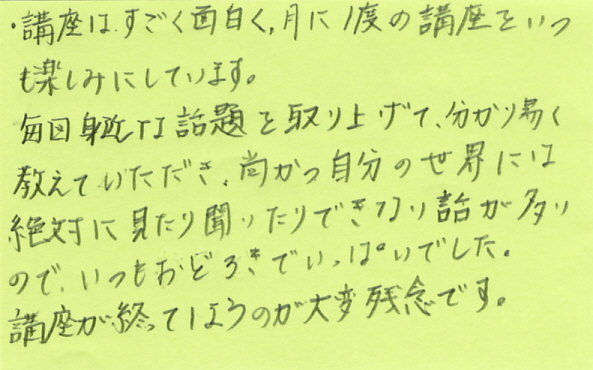 ・講座は、すごく面白く、月に1度の講座をいつ
も楽しみにしています。
毎回身近な話題を取り上げて、分かり易く
教えていただき、尚かつ自分の世界には
絶対に見たり聞いたりできない話が多い
ので、いつもおどろきでいっぱいでした。
講座が終ってしまうのが大変残念です。